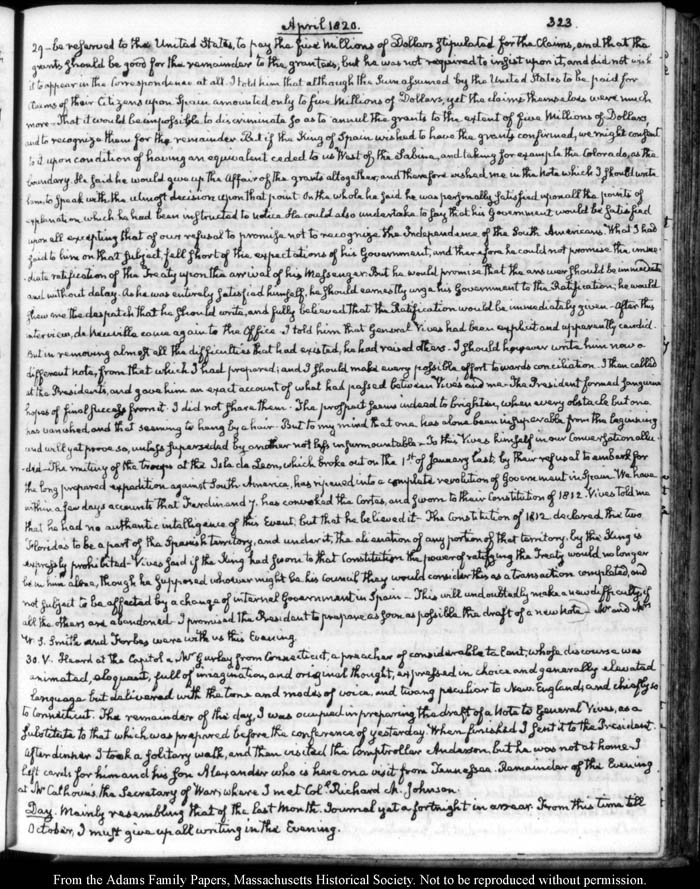 April 1820. 323.
29— be referred to the United States, to pay the five Millions of Dollars stipulated for the Claims, and that the
grants should be good for the remainder to the grantees, but he was not required to insist upon it, and did not wish
it to appear in the Correspondence at all. I told him that although the Sum assumed by the United States to be paid for
claims of their Citizens upon Spain amounted only to five Millions of Dollars, yet the claims themselves were much
more— That it would be impossible to discriminate so as to annul the grants to the extent of five Millions of Dollars,
and to recognize them for the remainder. But if the King of Spain wished to have the grants confirmed, we might consent
to it upon condition of having an equivalent ceded to us West of the Sabine, and taking for example the Colorado, as the
boundary. He said he would give up the Affair of the grants altogether, and therefore wished me in the Note which I should write
him, to speak with the utmost decision upon that point. On the whole he said he was personally satisfied upon all the points of
explanation which he had been instructed to notice. He could also undertake to say that his Government would be satisfied
upon all excepting that of our refusal to promise not to recognize the Independence of the South Americans. What I had
said to him on that subject, fell short of the expectations of his Government, and therefore he could not promise the imme-
diate ratification of the Treaty upon the arrival of his Messenger. But he would promise that the answer should be immediate
and without delay. As he was entirely satisfied himself, he should earnestly urge his Government to the Ratification; he would
shew me the despatch that he should write, and fully believed that the Ratification would be immediately given— After this
interview, de Neuville came again to the Office. I told him that General Vives had been explicit and apparently candid.
But in removing almost all the difficulties that had existed, he had raised others. I should however write him now a
different note, from that which I had prepared; and I should make every possible effort towards conciliation. I then called
at the President's, and gave him an exact account of what had passed between Vives and me— The President formed sanguine
hopes of final success from it. I did not share them. The prospect seems indeed to brighten, when every obstacle but one
has vanished, and that seeming to hang by a hair. But to my mind that one has alone been insuperable from the beginning
and will yet prove so, unless superseded by another not less insurmountable— To this Vives himself in our Conversation allu-
ded— The mutiny of the troops at the Isla de Leon, which broke out on the 1st of January last, by their refusal to embark for
the long prepared expedition against South America, has ripened into a complete revolution of Government in Spain. We have
within a few days accounts that Ferdinand 7. has convoked the Cortes, and sworn to their Constitution of 1812. Vives told me
that he had no authentic intelligence of this Event, but that he believed it— The Constitution of 1812. declared the two
Floridas to be a part of the Spanish territory, and under it, the alienation of any portion of that territory, by the King is
expressly prohibited— Vives said if the King had sworn to that Constitution the power of ratifying the Treaty would no longer
be in him alone, though he supposed whoever might be his Council they would consider this as a transaction completed, and
not subject to be affected by a change of internal Government in Spain— This will undoubtedly make a new difficulty, if
all the others are abandoned. I promised the President to prepare as soon as possible the draft of a new Note— Mr and Mrs
W. S. Smith and Forbes were with us this Evening.
30. V. Heard at the Capitol a Mr Gurley from Connecticut, a preacher of considerable talent, whose discourse was
animated, eloquent, full of imagination, and original thought, expressed in choice and generally elevated
language but delivered with the tone and modes of voice, and twang peculiar to New England, and chiefly so
to Connecticut. The remainder of the day, I was occupied in preparing the draft of a Note to General Vives, as a
substitute to that which was prepared before the conference of yesterday. When finished I sent it to the President.
After dinner I took a solitary walk, and then visited the Comptroller Anderson, but he was not at home. I
left cards for him and his Son Alexander who is here on a visit from Tennessee. Remainder of the Evening
at Mr Calhoun's the Secretary of War, where I met Col. Richard M. Johnson.
Day. Mainly resembling that of the last Month. Journal yet a fortnight in arrear. From this time till
October, I must give up all writing in the Evening.
From the Adams Family Papers, Massachusetts Historical Society. Not to be reproduced without permission.